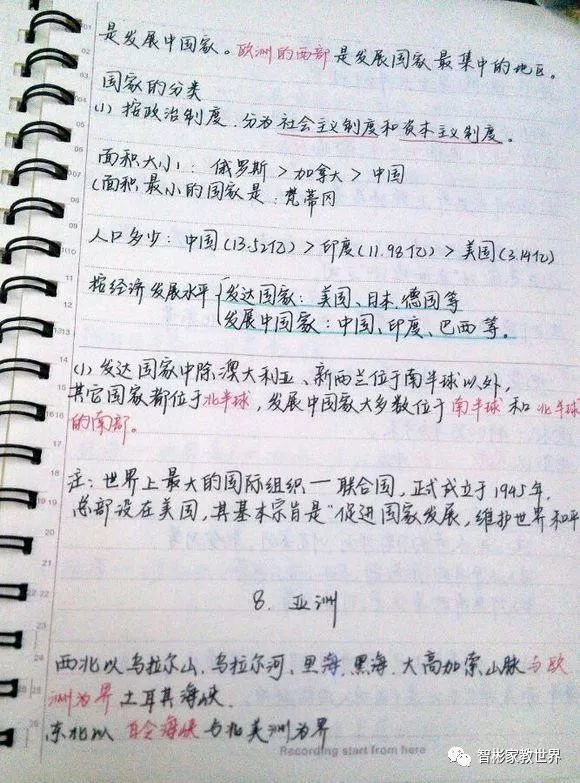 是发展中国家。欧洲的西部是发展国家最集中的地区。
国家的分类
(1) 按政治制度.分为社会主义制度和资本主义制度。
面积大小: 俄罗斯 > 加拿大 > 中国
(面积最小的国家是: 梵蒂冈
人口多少: 中国(13.52亿) > 印度(11.98亿) > 美国(3.14亿)
按经济发展水平
发达国家: 美国、日本、德国等
发展中国家: 中国、印度、巴西等。
(1) 发达国家中除澳大利亚、新西兰位于南半球以外,
其它国家都位于北半球, 发展中国家大多数位于南半球和北半球
的南部。
注: 世界上最大的国际组织一联合国, 正式成立于1945年,
总部设在美国, 其基本宗旨是"促进国家发展, 维护世界和平
8. 亚洲
西北以乌拉尔山、乌拉尔河、里海、黑海、大高加索山脉与欧
洲为界 土耳其海峡.
东北以白令海峡与北美洲为界
Recording start from here
智彬家教世界